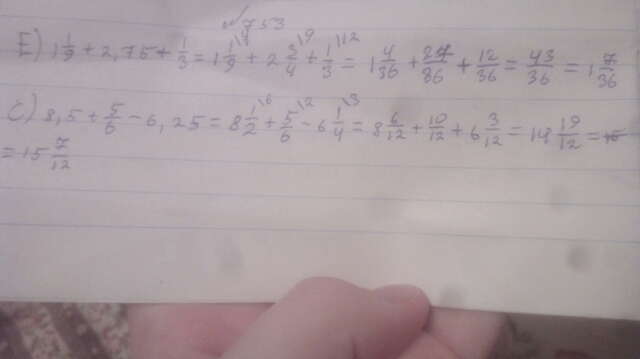 √753
E) 1 1/9 + 2,75 + 1/3 = 1 1/9 \4 + 2 3/4 \9 + 1/3 \12 = 1 4/36 + 27/36 + 12/36 = 43/36 = 1 7/36
C) 8,5 + 5/6 - 6,25 = 8 1/2 \6 + 5/6 \2 - 6 1/4 \3 = 8 6/12 + 10/12 + 6 3/12 = 14 19/12 =
= 15 7/12